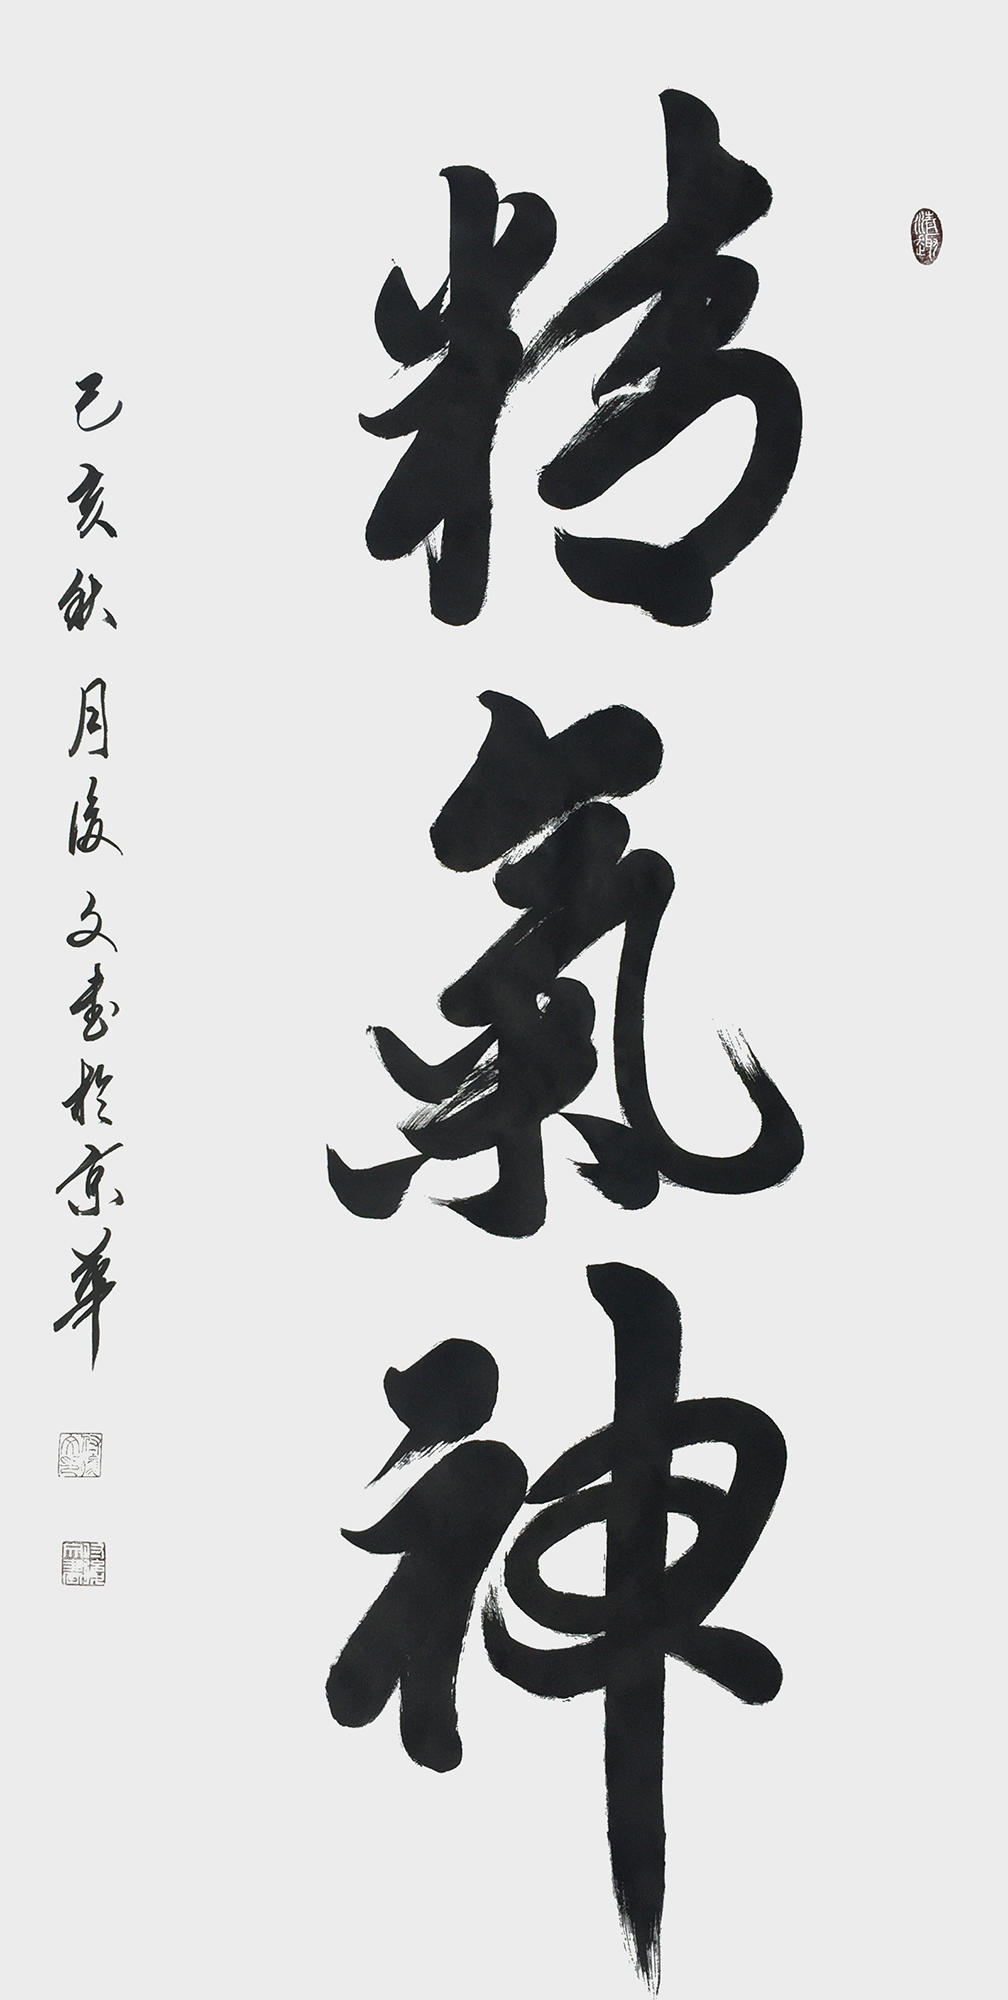 精氣神
己亥秋月俊文書於京華
清趣